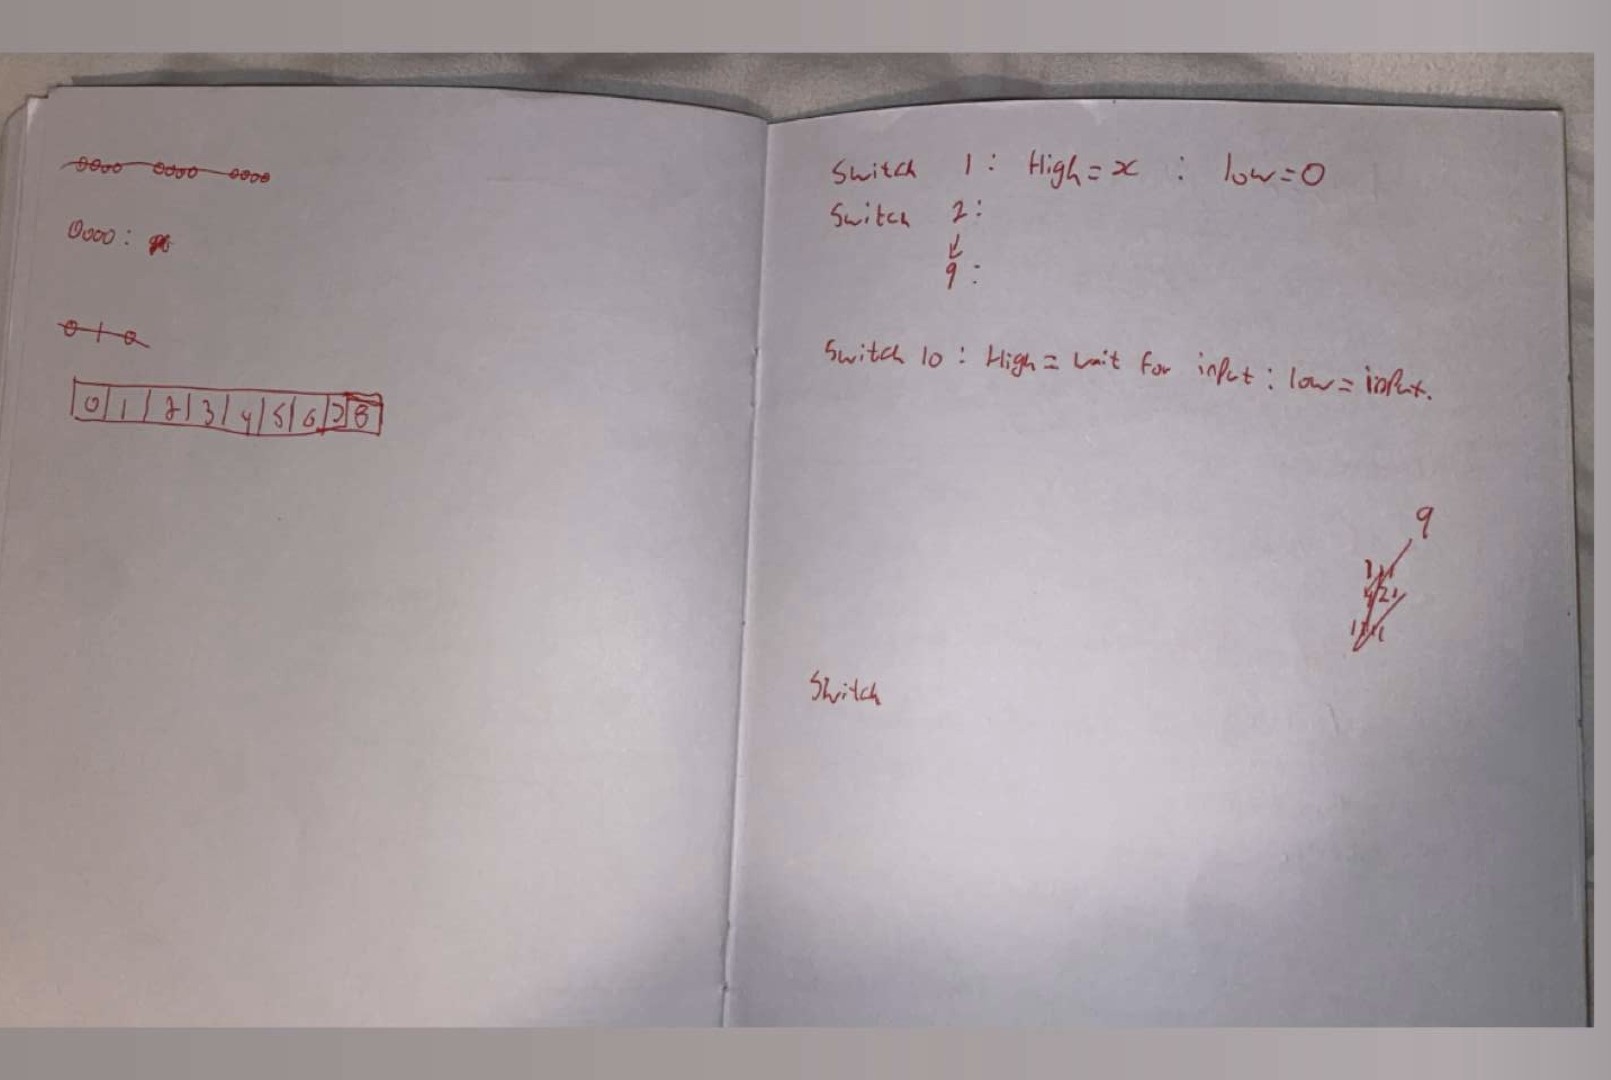 0000 0000 0000
0000 :
0 1 0
0 1 2 3 4 5 6 7 8
Switch 1 : High = x : low = 0
Switch 2 :
↓
9 :
Switch 10 : High = wait for input : low = input.
9
Switch